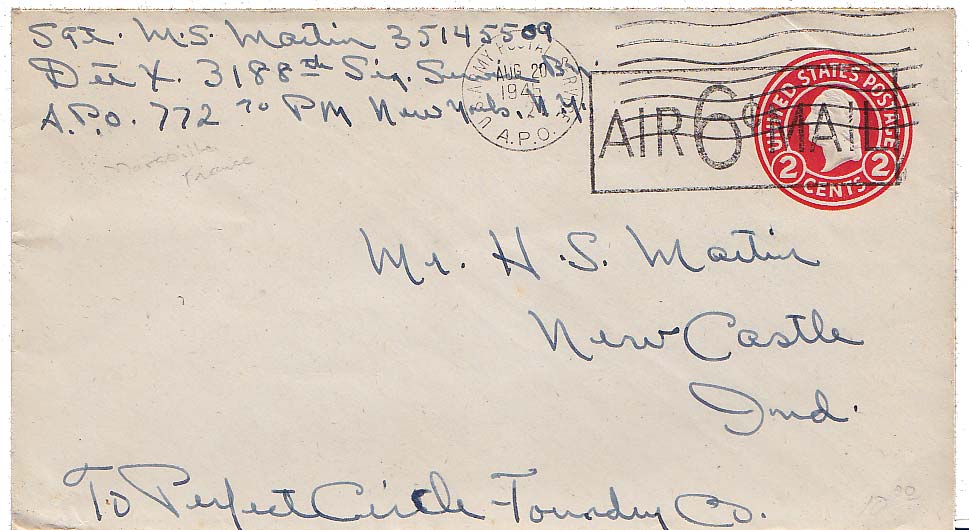 Sgt. M.S. Martin 35145509
Det X. 3188th Sig. Service Bn.
A.P.O. 772 % PM New York, N.Y.
Marseille
France
U.S. ARMY POSTAL SERVICE
AUG 20
1945
A.P.O.
AIR 6¢ MAIL
UNITED STATES POSTAGE
2 CENTS 2
Mr. H.S. Martin
New Castle
Ind.
To Perfect Circle Foundry Co.
12.00